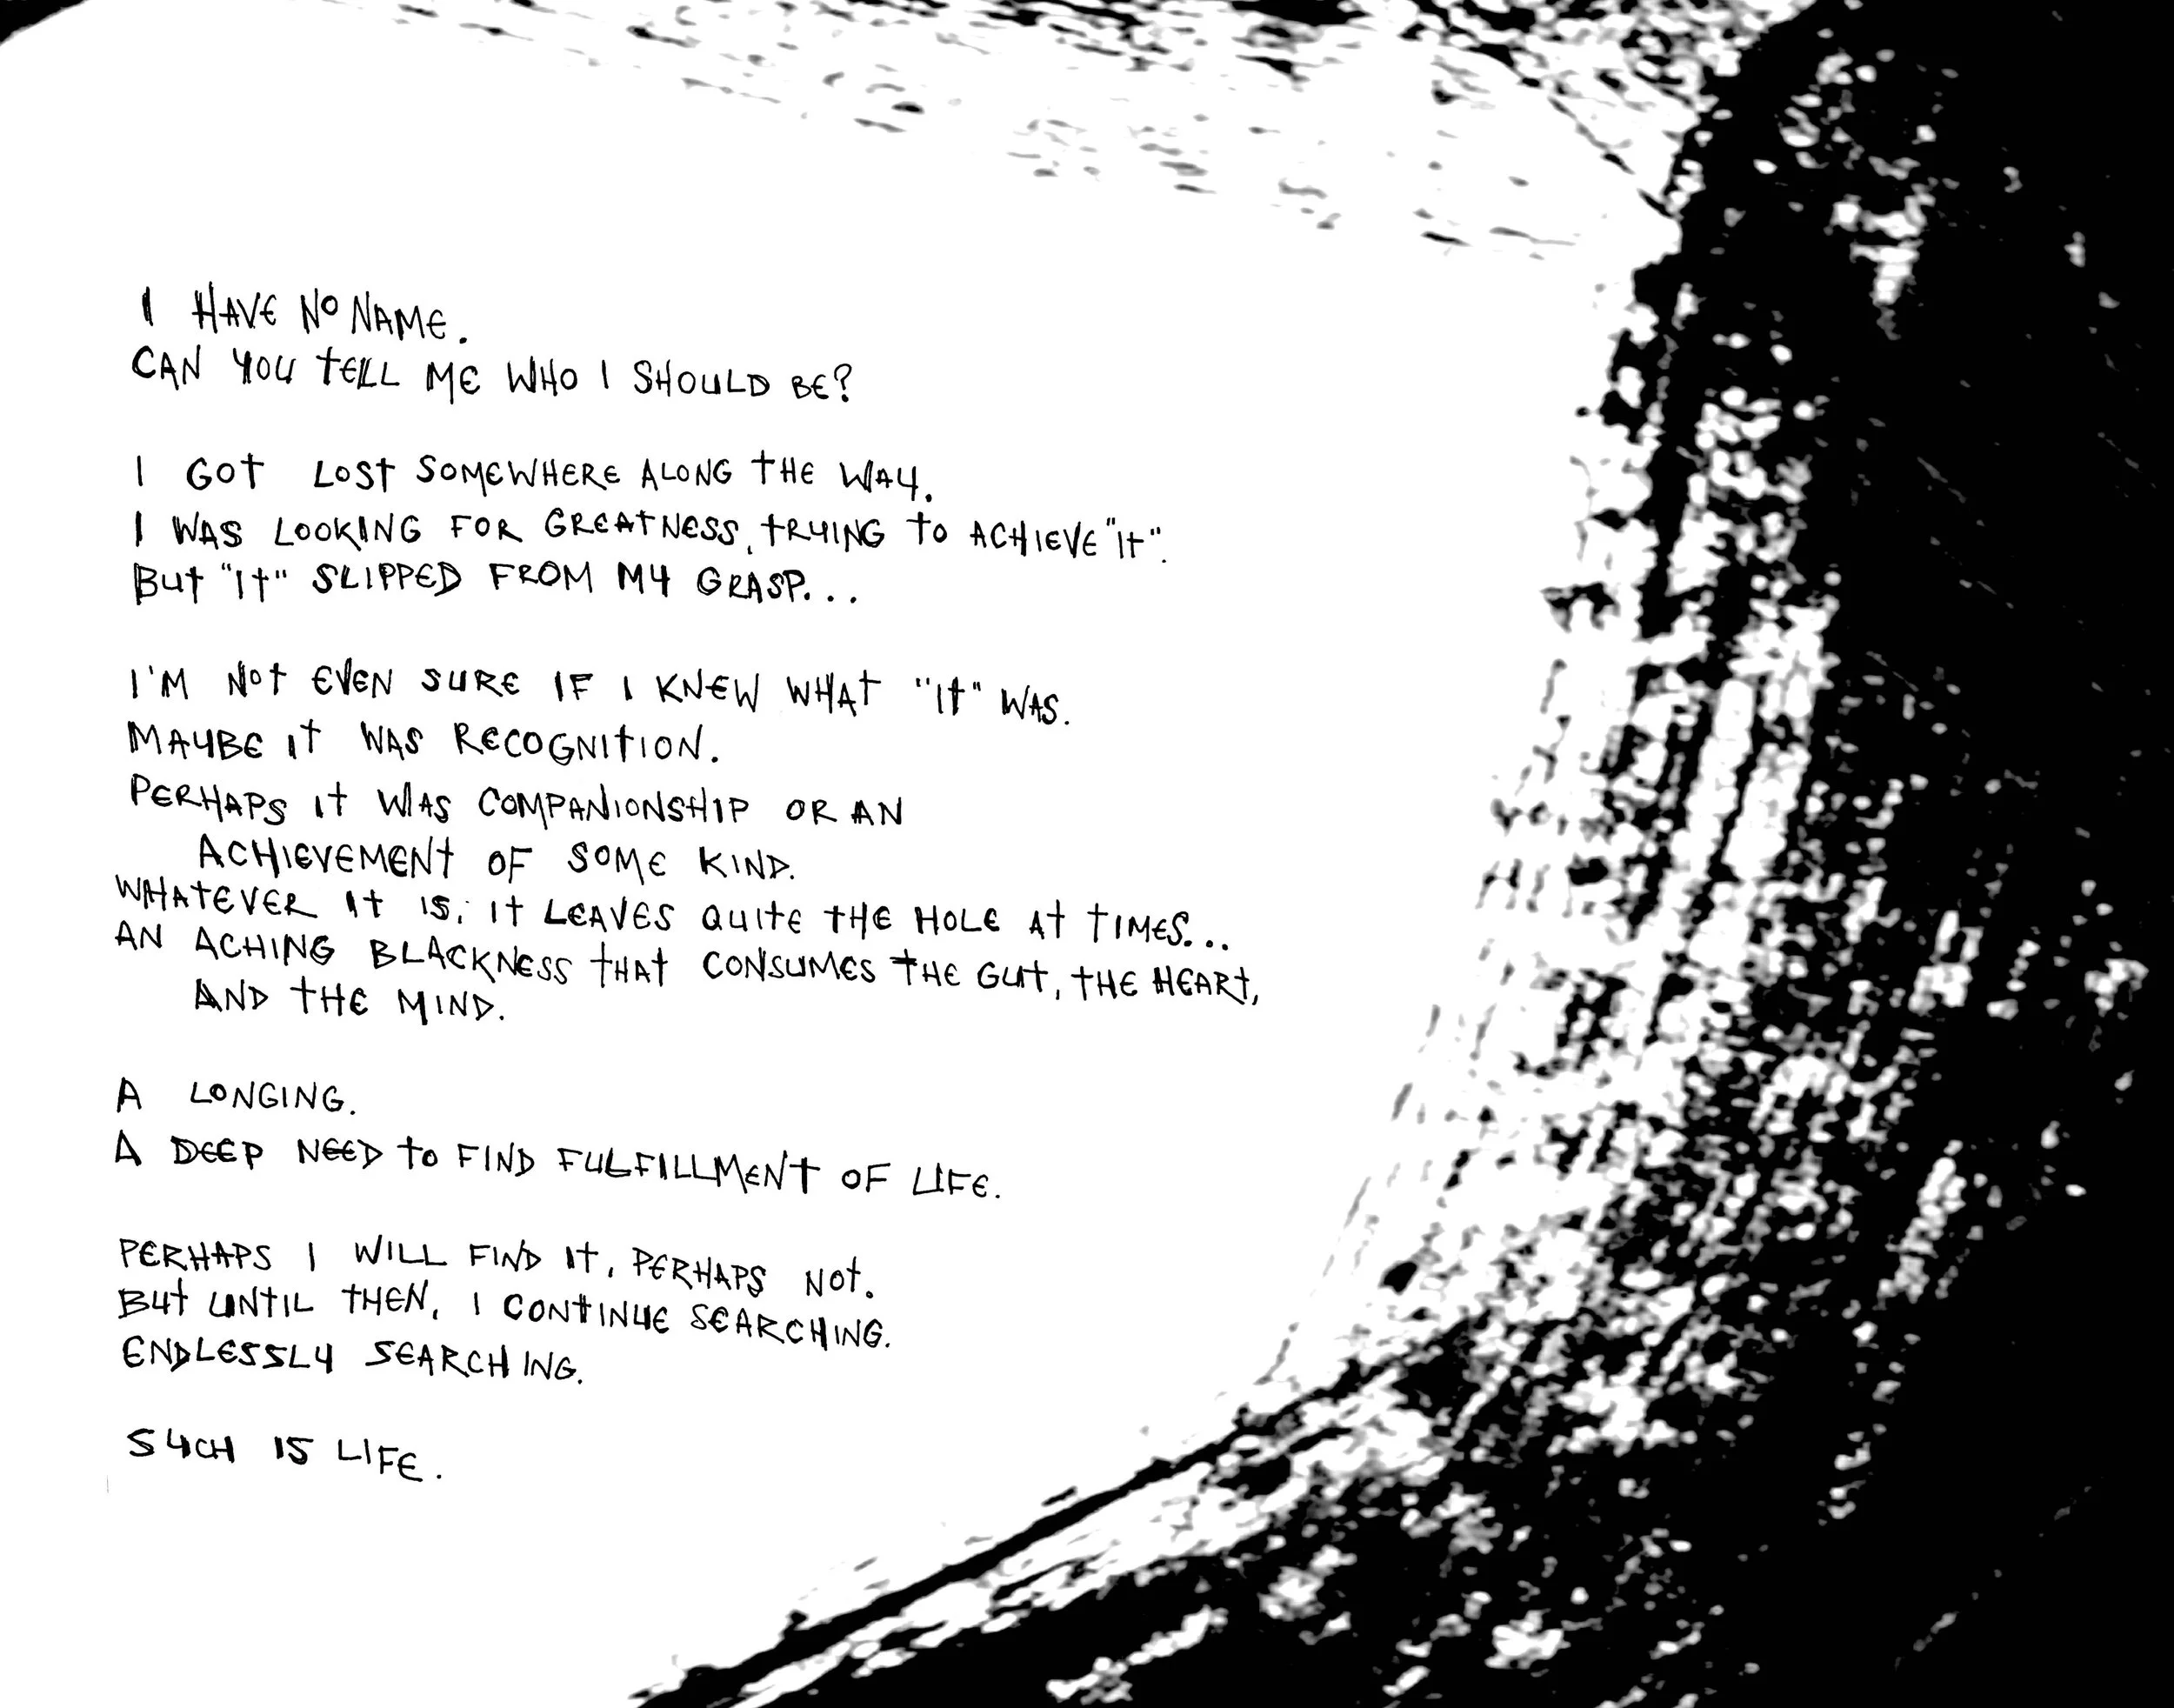 I HAVE NO NAME.
CAN YOU TELL ME WHO I SHOULD BE?
I GOT LOST SOMEWHERE ALONG THE WAY.
I WAS LOOKING FOR GREATNESS, TRYING TO ACHIEVE "IT".
BUT "IT" SLIPPED FROM MY GRASP...
I'M NOT EVEN SURE IF I KNEW WHAT "IT" WAS.
MAYBE IT WAS RECOGNITION.
PERHAPS IT WAS COMPANIONSHIP OR AN
ACHIEVEMENT OF SOME KIND.
WHATEVER IT IS, IT LEAVES QUITE THE HOLE AT TIMES...
AN ACHING BLACKNESS THAT CONSUMES THE GUT, THE HEART,
AND THE MIND.
A LONGING.
A DEEP NEED TO FIND FULFILLMENT OF LIFE.
PERHAPS I WILL FIND IT, PERHAPS NOT.
BUT UNTIL THEN, I CONTINUE SEARCHING.
ENDLESSLY SEARCHING.
SUCH IS LIFE.